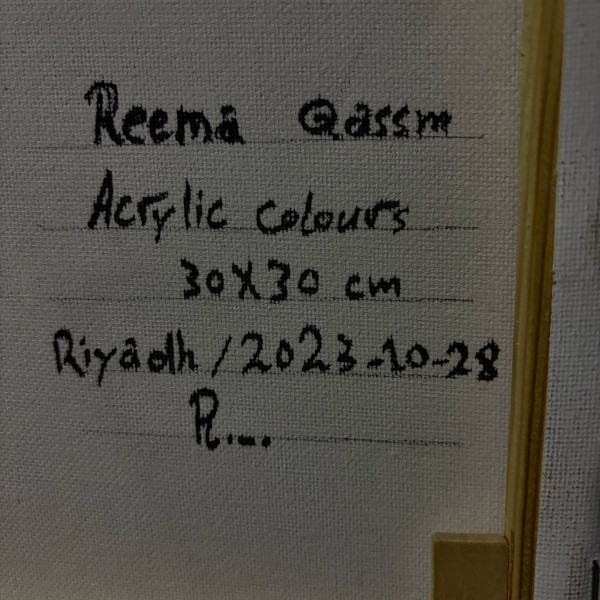 Reema Qassm
Acrylic colours
30X30 cm
Riyadh / 2023-10-28
R....